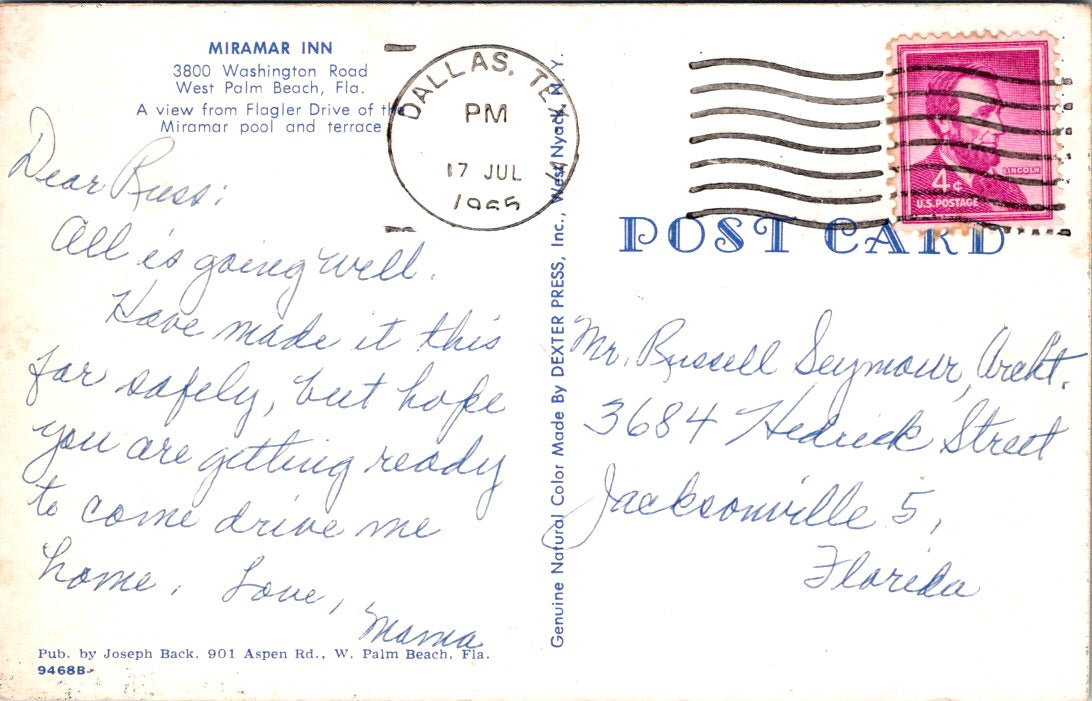 MIRAMAR INN
3800 Washington Road
West Palm Beach, Fla.
A view from Flagler Drive of the
Miramar pool and terrace
Dear Russ:
All is going well.
Have made it this
far safely, but hope
you are getting ready
to come drive me
home. Love,
Mama
Pub. by Joseph Back, 901 Aspen Rd., W. Palm Beach, Fla.
9468B
Genuine Natural Color Made By DEXTER PRESS, Inc., West Nyack, N. Y.
DALLAS, TEX
PM
17 JUL
1965
4¢
LINCOLN
U.S. POSTAGE
POST CARD
Mr. Russell Seymour, Archt.
3684 Hedrick Street
Jacksonville 5,
Florida